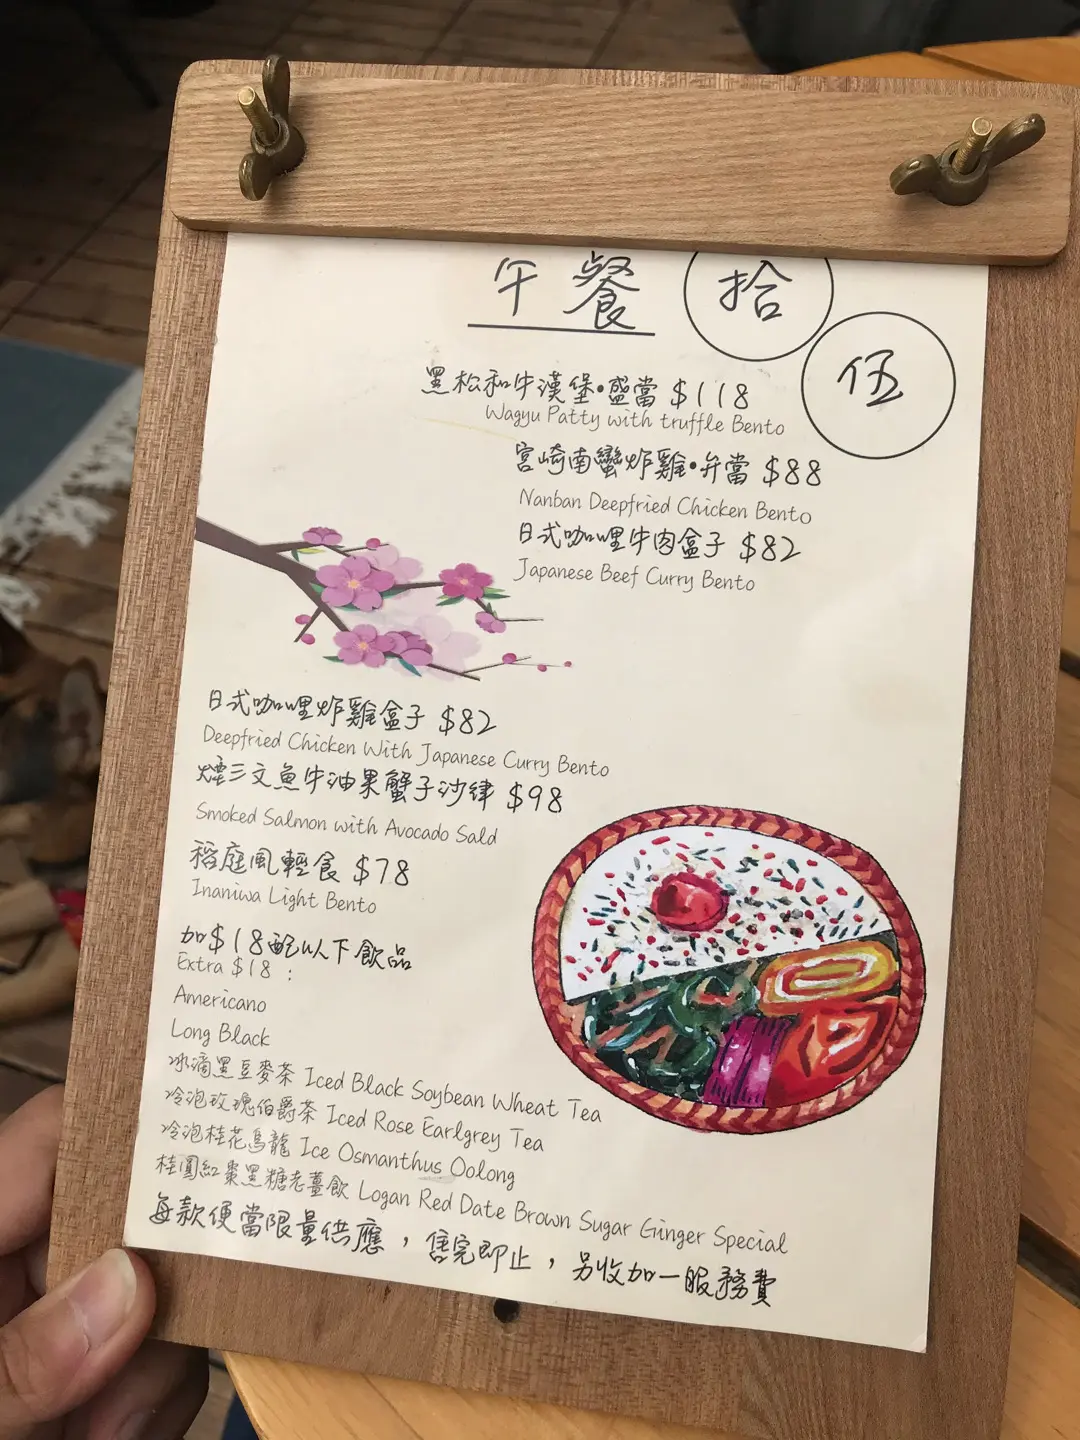 午餐
拾
伍
黑松和牛漢堡•盛當 $118
Wagyu Patty with truffle Bento
宮崎南蠻炸雞•弁當 $88
Nanban Deepfried Chicken Bento
日式咖哩牛肉盒子 $82
Japanese Beef Curry Bento
日式咖哩炸雞盒子 $82
Deepfried Chicken With Japanese Curry Bento
煙三文魚牛油果蟹子沙律 $98
Smoked Salmon with Avocado Sald
稻庭風輕食 $78
Inaniwa Light Bento
加$18配以下飲品
Extra $18 :
Americano
Long Black
冰滴黑豆麥茶 Iced Black Soybean Wheat Tea
冷泡玫瑰伯爵茶 Iced Rose Earlgrey Tea
冷泡桂花烏龍 Ice Osmanthus Oolong
桂圓紅棗黑糖老薑飲 Logan Red Date Brown Sugar Ginger Special
每款便當限量供應，售完即止，另收加一服務費